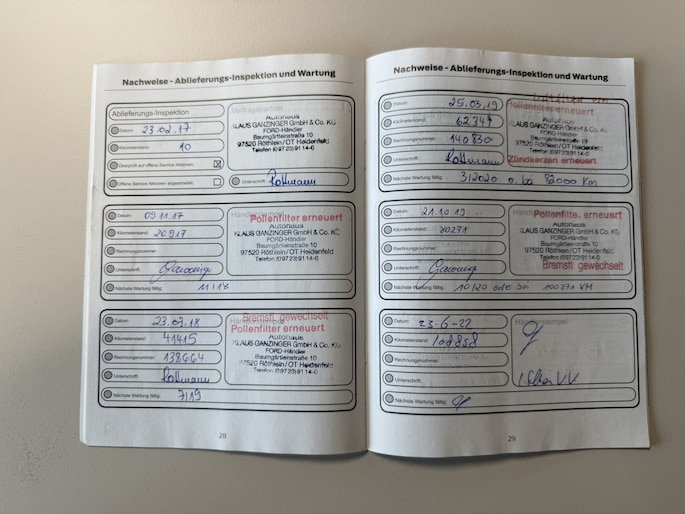 Nachweise - Ablieferungs-Inspektion und Wartung
Ablieferungs-Inspektion
Datum: 23.02.17
Kilometerstand: 10
Überprüft auf offene Service Aktionen:
Offene Service Aktionen abgearbeitet:
Vertragspartner
Autohaus
KLAUS GANZINGER GmbH & Co. KG
FORD-Händler
Baumgärtleinstraße 10
97520 Röthlein/OT Heidenfeld
Telefon (09723) 91 14-0
Unterschrift:
Datum: 09.11.17
Kilometerstand: 20917
Rechnungsnummer:
Unterschrift:
Nächste Wartung fällig: 11/18
Pollenfilter erneuert
Autohaus
KLAUS GANZINGER GmbH & Co. KG
FORD-Händler
Baumgärtleinstraße 10
97520 Röthlein/OT Heidenfeld
Telefon (09723) 91 14-0
Datum: 23.07.18
Kilometerstand: 41415
Rechnungsnummer: 138664
Unterschrift:
Nächste Wartung fällig: 7/19
Bremsfl. gewechselt
Pollenfilter erneuert
Autohaus
KLAUS GANZINGER GmbH & Co. KG
FORD-Händler
Baumgärtleinstraße 10
97520 Röthlein/OT Heidenfeld
Telefon (09723) 91 14-0
28
Nachweise - Ablieferungs-Inspektion und Wartung
Datum: 25.03.19
Kilometerstand: 62347
Rechnungsnummer: 140830
Unterschrift:
Nächste Wartung fällig: 3/2020 o. bei 82000 Km
Pollenfilter erneuert
Autohaus
KLAUS GANZINGER GmbH & Co. KG
FORD-Händler
97520 Röthlein/OT Heidenfeld
Telefon (09723) 91 14-0
Zündkerzen erneuert
Datum: 21.10.19
Kilometerstand: 80271
Rechnungsnummer:
Unterschrift:
Nächste Wartung fällig: 10/20 oder bei 100271 KM
Pollenfilte. erneuert
Autohaus
KLAUS GANZINGER GmbH & Co. KG
FORD-Händler
Baumgärtleinstraße 10
97520 Röthlein/OT Heidenfeld
Telefon (09723) 91 14-0
Bremsfl. gewechselt
Datum: 23-6-22
Kilometerstand: 108858
Rechnungsnummer:
Unterschrift:
Nächste Wartung fällig:
Händlerstempel
29